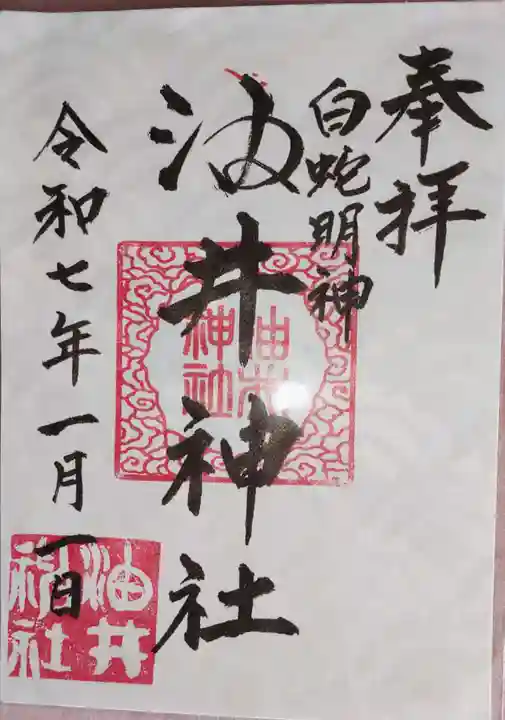 奉拝
白蛇明神
油井神社
令和七年一月一日
油井
神社